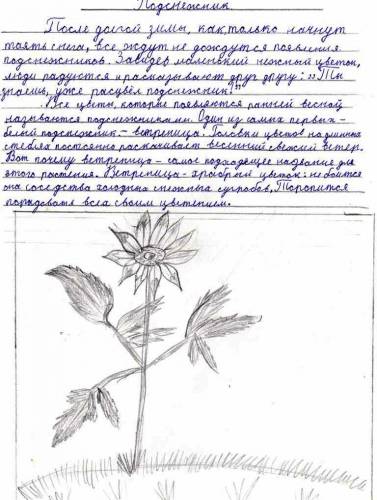 Подснежник.
После долгой зимы, как только начнут
таять снега, все ждут не дождутся появления
подснежников. Завидев маленький нежный цветок,
люди радуются и рассказывают друг другу: „Ты
знаешь, уже расцвёл подснежник!"
Все цветы, которые появляются ранней весной
называются подснежниками. Один из самых первых –
белый подснежник – ветреница. Головки цветов на длинных
стеблях постоянно раскачивает весенний свежий ветер.
Вот почему ветреница – самое подходящее название для
этого растения. Ветреница – храбрый цветок: не боится
она соседства холодных снежных сугробов, Торопится
порадовать всех своим цветением.